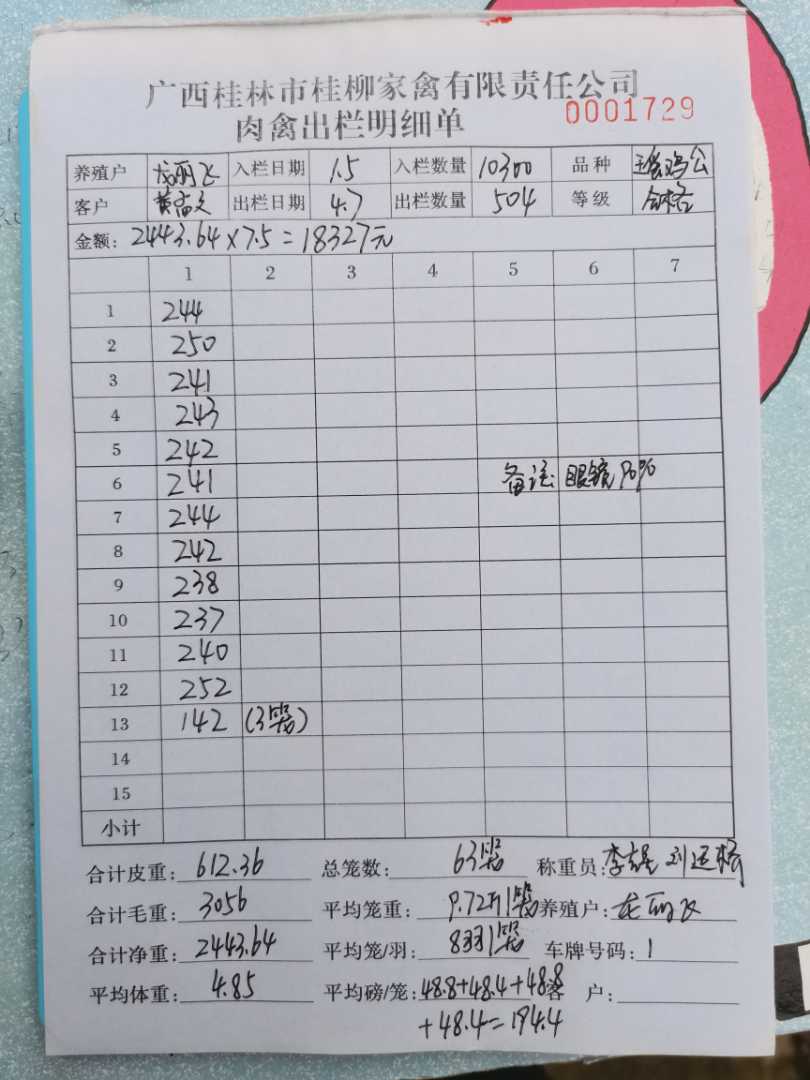 广西桂林市桂柳家禽有限责任公司
肉禽出栏明细单 0001729
养殖户 龙丽飞 入栏日期 1.5 入栏数量 10300 品种 瑶鸡公
客户 出栏日期 4.7 出栏数量 504 等级 合格
金额: 2443.64×7.5=18327元
1 2 3 4 5 6 7
1 244
2 250
3 241
4 243
5 242
6 241 备注: 眼镜90%
7 244
8 242
9 238
10 237
11 240
12 252
13 142 (3笼)
14
15
小计
合计皮重: 612.36 总笼数: 63笼 称重员: 李 刘运格
合计毛重: 3056 平均笼重: 9.72斤/笼 养殖户: 龙丽飞
合计净重: 2443.64 平均笼/羽: 8羽/笼 车牌号码: 1
平均体重: 4.85 平均磅/笼: 48.8+48.4+48.8 客 户:
+48.4=194.4